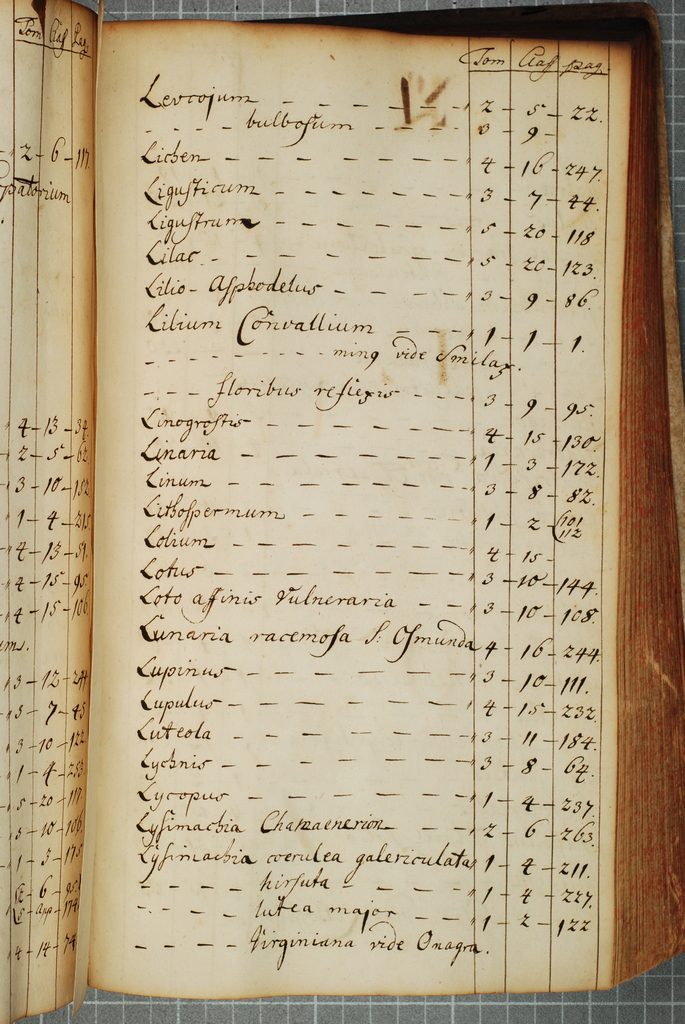 Tom Clas Pag.
2 - 6 - 117
4 - 13 - 34
2 - 5 - 62
3 - 10 - 152
1 - 4 - 215
4 - 13 - 51.
4 - 15 - 95
4 - 15 - 106
3 - 12 - 244
3 - 7 - 45
3 - 10 - 122
1 - 4 - 253
5 - 20 - 117
3 - 10 - 106.
1 - 3 - 175
4 - 14 - 74
Tom Class pag.
Leucojum - - - - - " 2 - 5 - 22.
- - - - bulbosum - - - - " 3 - 9 -
Lichen - - - - - - - - " 4 - 16 - 247.
Ligusticum - - - - - - " 3 - 7 - 44.
Ligustrum - - - - - - " 5 - 20 - 118
Lilac - - - - - - - " 5 - 20 - 123.
Lilio - Asphodelus - - - - - " 3 - 9 - 86.
Lilium Convallium - - - " 1 - 1 - 1.
- - - - - - - - minq vide Smilax.
- - - floribus reflexis - - - " 3 - 9 - 95.
Linogrostis - - - - - - " 4 - 15 - 130.
Linaria - - - - - - - " 1 - 3 - 172.
Linum - - - - - - - - " 3 - 8 - 82.
Lithospermum - - - - - " 1 - 2 - (101
112
Lolium - - - - - - - " 4 - 15 -
Lotus - - - - - - - - " 3 - 10 - 144.
Loto affinis Vulneraria - - " 3 - 10 - 108.
Lunaria racemosa S: Osmunda " 4 - 16 - 244.
Lupinus - - - - - - - " 3 - 10 - 111.
Lupulus - - - - - - - " 4 - 15 - 232.
Luteola - - - - - - - " 3 - 11 - 184.
Lychnis - - - - - - - " 3 - 8 - 64.
Lycopus - - - - - - - " 1 - 4 - 237.
Lysimachia Chamaenerion - - " 2 - 6 - 263.
Lysimachia coerulea galericulata " 1 - 4 - 211.
- - - - hirsuta - - - - " 1 - 4 - 227.
- - - - lutea major - - - " 1 - 2 - 122
- - - - Virginiana vide Onagra.